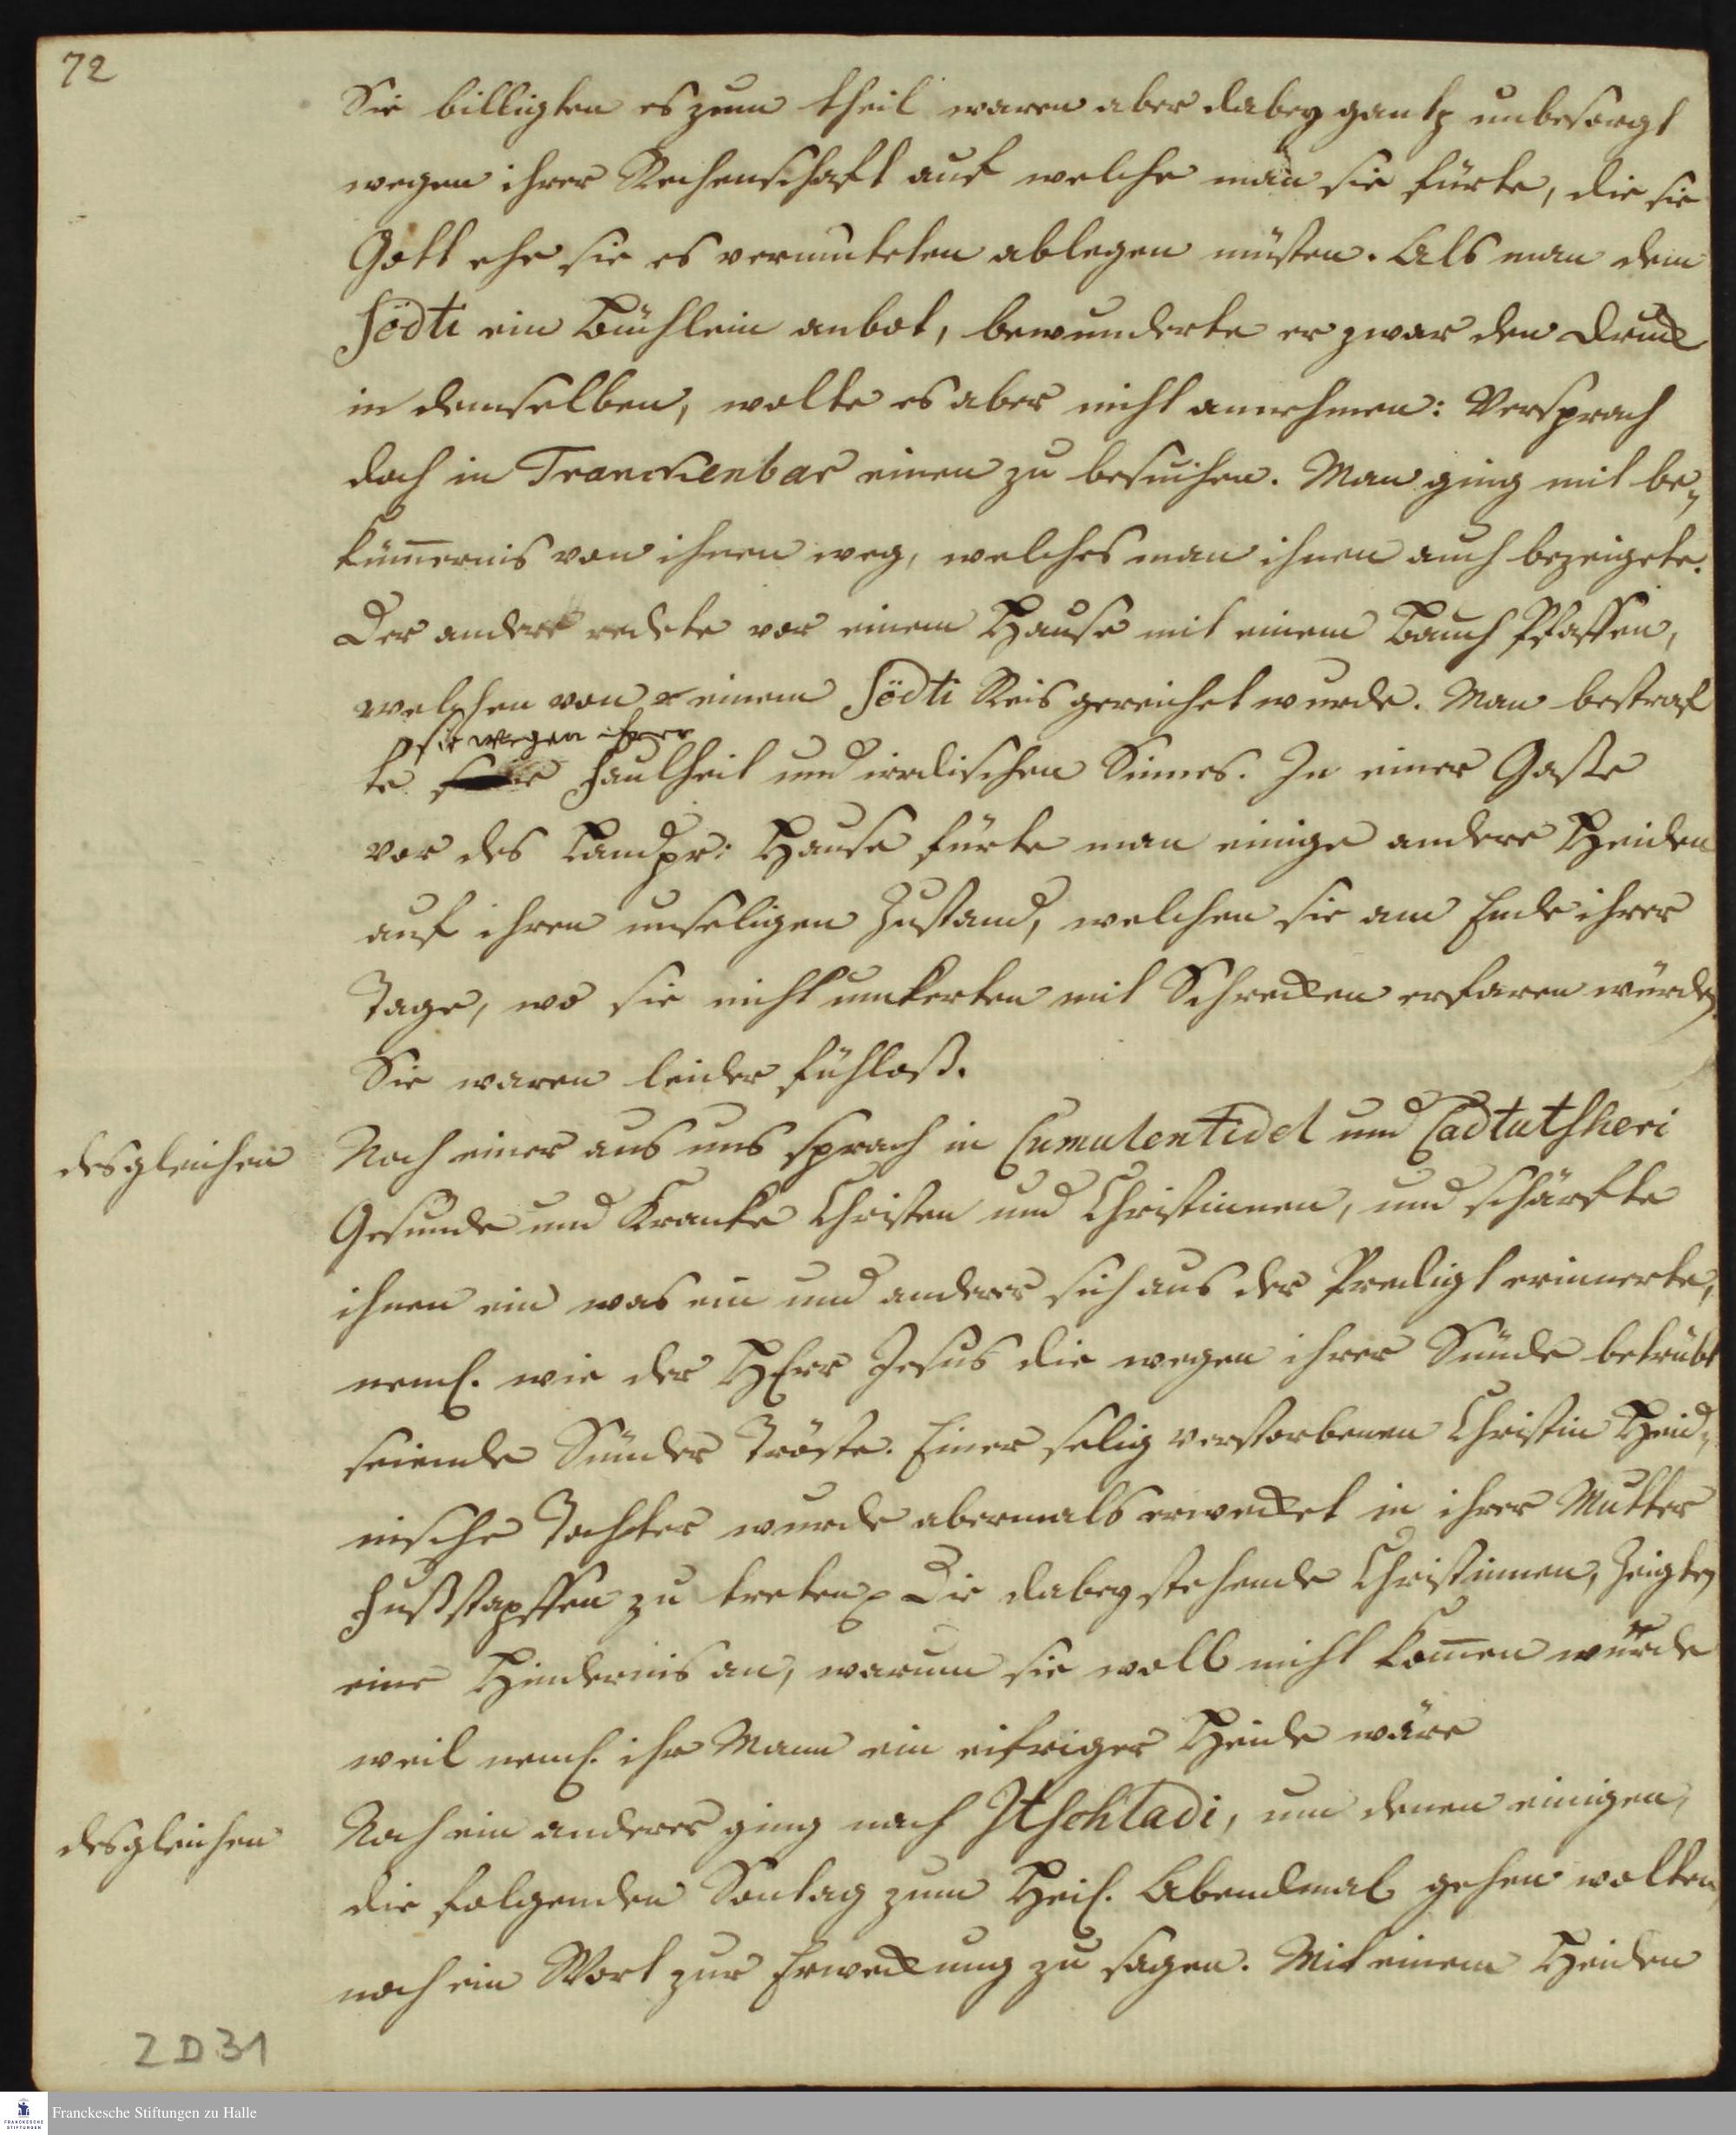 72
Sie billigten es zum theil waren aber dabey gantz unbesorgt
wegen ihrer Rechenschaft auf welche man sie fürte, die sie
Gott ehe sie es vermuteten ablegen müsten. Als man dem
Södti ein Büchlein anbot, bewunderte er zwar den Druck
in demselben, wolte es aber nicht annehmen: Versprach
doch in Tranckenbar einen zu besuchen. Man ging mit be,,
kum̄ernis von ihnen weg, welches man ihnen auch bezeigete.
Der andere redete vor einem Hause mit einem Bauch Pfaffen,
welchen von einem Södti Reis gereichet wurde. Man bestraf
sie wegen ihrer
te Faulheit und irrdischen Sinnes. In einer Gasse
vor des Landpr: Hause fürte man einige andere Heiden
auf ihren unseligen Zustand, welchen sie am Ende ihrer
Tage, wo sie nicht umkerten mit Schrecken erfaren würden.
Sie waren leider fühloß.
desgleichen
Noch einer aus uns sprach in Cumulentidel und Cadtutsheri
Gesunde und Kranke Christen und Christinnen, und schärfte
ihnen ein was ein und anderer sich aus der Predigt erinnerte,
neml. wie der HErr Jesus die wegen ihrer Sünde betrübt
seiende Sünder tröste. Einer selig verstorbenen Christin Heid,,
nische Tochter wurde abermals erwecket in ihrer Mutter
Fußstapffen zu treten. Die dabey stehende Christinnen, Zeigten
eine Hindernis an, warum sie woll nicht kom̄en würde
weil neml. ihr Mann ein eifriger Heide wäre
desgleichen
Noch ein anderer ging nach Itschiladi, um denen einigen,
die folgenden Sontag zum Heil. Abendmal gehen wolten,
noch ein Wort zur Erweckung zu sagen. Mit einem Heiden
2 D 31
FRANCKESCHE STIFTUNGEN
Franckesche Stiftungen zu Halle